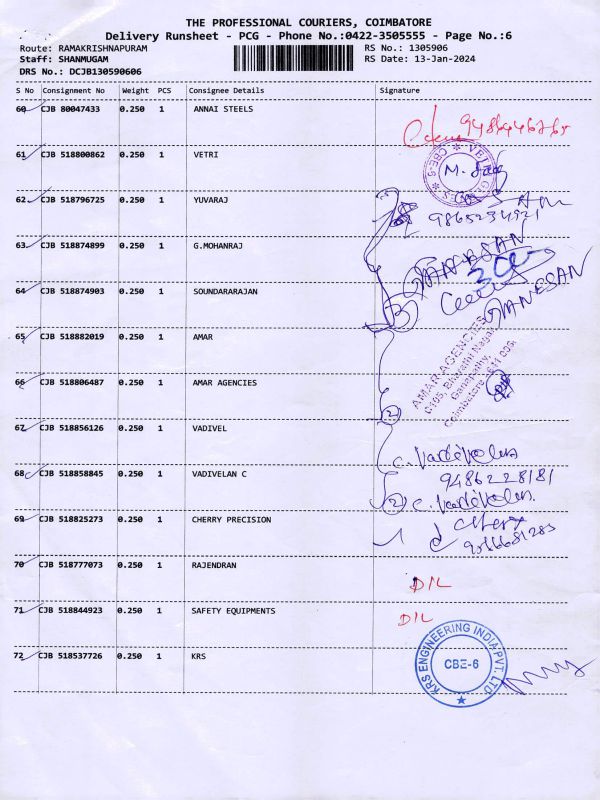 THE PROFESSIONAL COURIERS, COIMBATORE
Delivery Runsheet - PCG - Phone No.:0422-3505555 - Page No.:6
Route: RAMAKRISHNAPURAM RS No.: 1305906
Staff: SHANMUGAM RS Date: 13-Jan-2024
DRS No.: DCJB130590606
S No Consignment No Weight PCS Consignee Details Signature
60 CJB 80047433 0.250 1 ANNAI STEELS
61 CJB 518800862 0.250 1 VETRI
CBE-6
M.
62 CJB 518796725 0.250 1 YUVARAJ
9865234921
63 CJB 518874899 0.250 1 G.MOHANRAJ
64 CJB 518874903 0.250 1 SOUNDARARAJAN
GANESAN
65 CJB 518882019 0.250 1 AMAR
AMAR AGENCIES
Bharathi Nagar
Ganapathy,
Coimbatore - 641 006.
66 CJB 518806487 0.250 1 AMAR AGENCIES
2
67 CJB 518856126 0.250 1 VADIVEL
68 CJB 518858845 0.250 1 VADIVELAN C
9486228181
2
69 CJB 518825273 0.250 1 CHERRY PRECISION
70 CJB 518777073 0.250 1 RAJENDRAN
D/L
71 CJB 518844923 0.250 1 SAFETY EQUIPMENTS
D/L
72 CJB 518537726 0.250 1 KRS
KRS ENGINEERING INDIA PVT. LTD
CBE-6